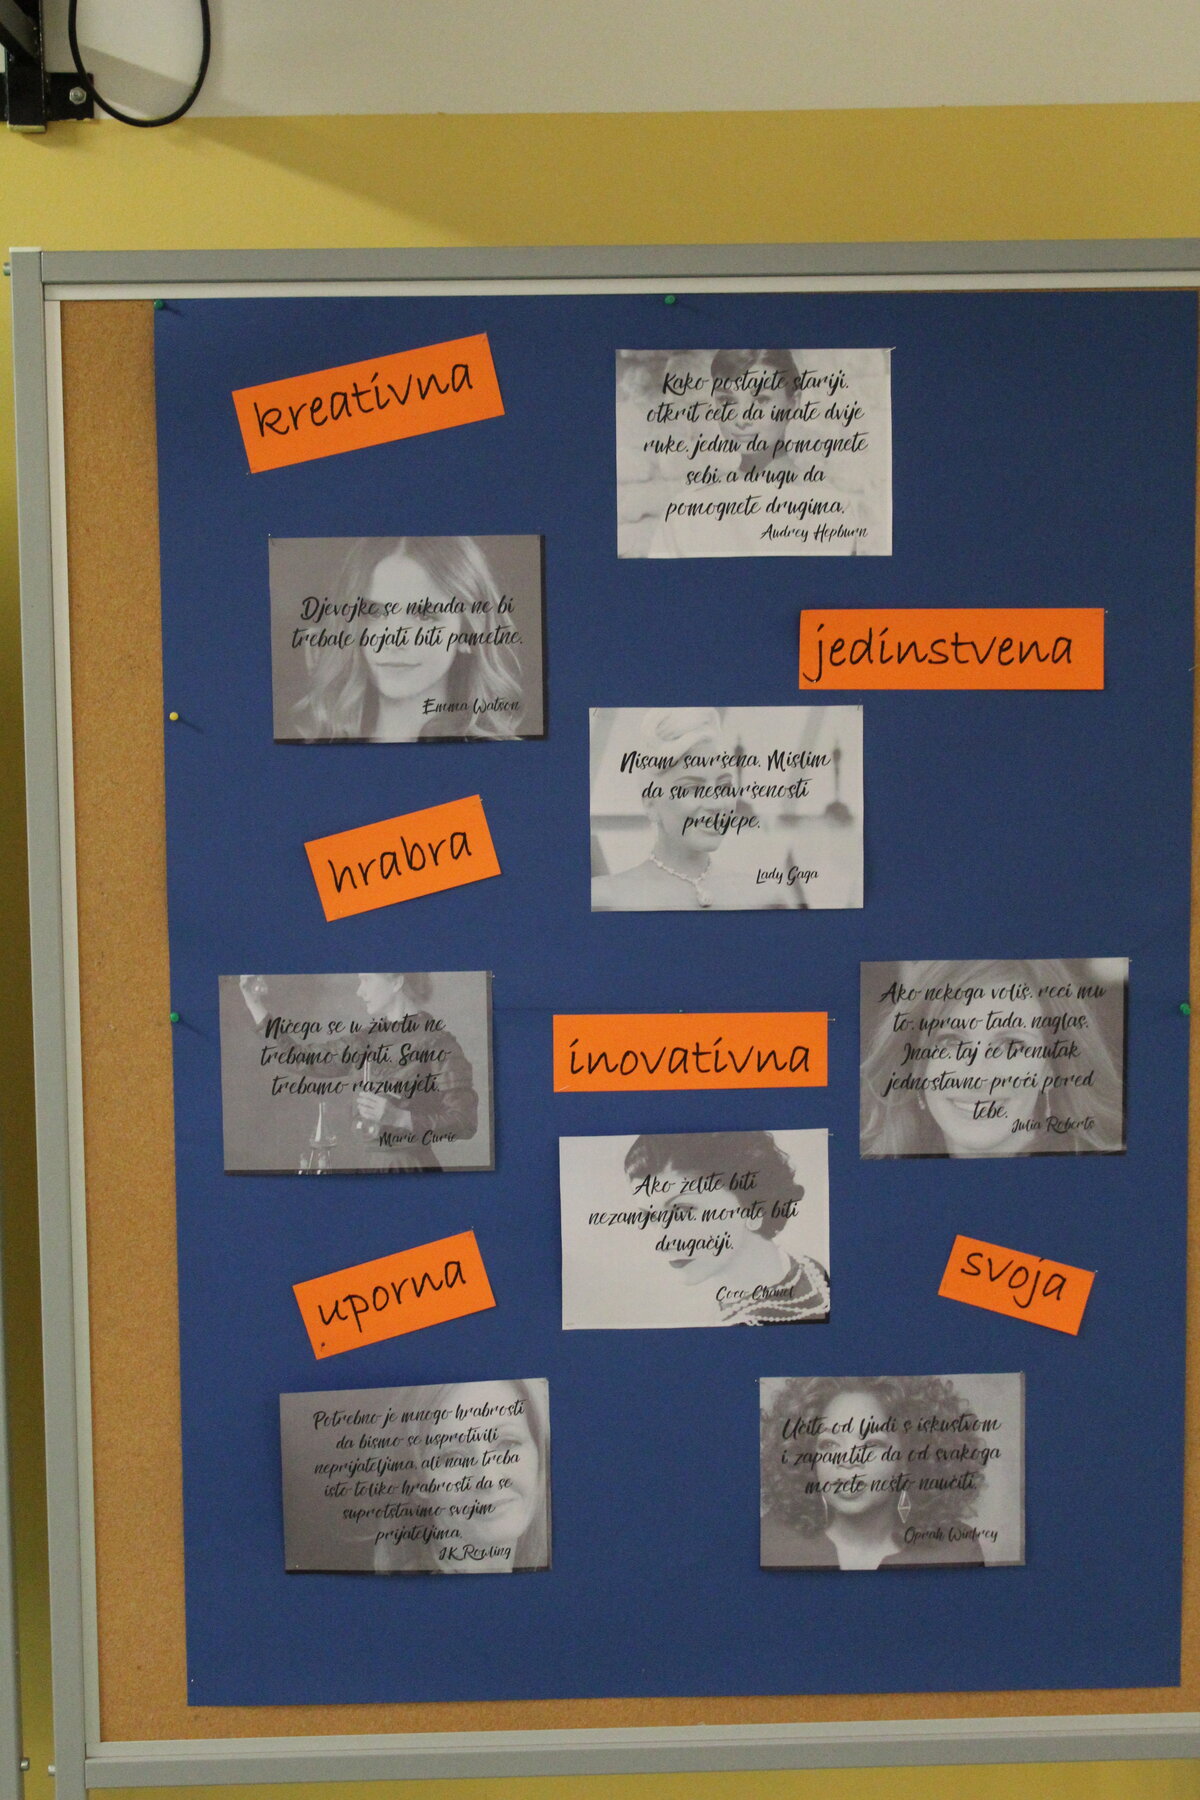 kreativna
Kako postajete stariji,
otkrit ćete da imate dvije
ruke, jednu da pomognete
sebi, a drugu da
pomognete drugima.
Audrey Hepburn
Djevojke se nikada ne bi
trebale bojati biti pametne.
Emma Watson
jedinstvena
Nisam savršena. Mislim
da su nesavršenosti
prelijepe.
Lady Gaga
hrabra
Ničega se u životu ne
trebamo bojati. Samo
trebamo razumjeti.
Marie Curie
inovativna
Ako nekoga voliš, reci mu
to, upravo tada, naglas.
Inače, taj će trenutak
jednostavno proći pored
tebe.
Julia Roberts
Ako želite biti
nezamjenjivi, morate biti
drugačiji.
Coco Chanel
uporna
svoja
Potrebno je mnogo hrabrosti
da bismo se usprotivili
neprijateljima, ali nam treba
isto toliko hrabrosti da se
suprotstavimo svojim
prijateljima.
J.K. Rowling
Učite od ljudi s iskustvom
i zapamtite da od svakoga
možete nešto naučiti.
Oprah Winfrey